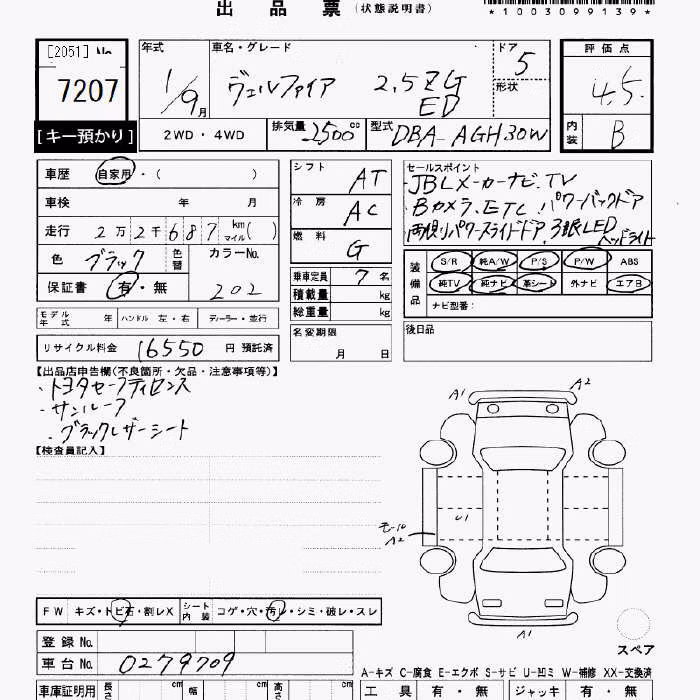 出品票（状態説明書）
*1003099139*
[2051] No.
7207
[キー預かり]
年式
1/9月
車名・グレード
ヴェルファイア 2.5ZG
ED
ドア
5
形状
評価点
4.5
内装
B
2WD・4WD
排気量
2500cc
型式
DBA-AGH30W
車歴
自家用・( )
車検 年 月
走行 2万2千687 km マイル( )
色 ブラック
色替
カラーNo.
202
保証書 有・無
モデル年式 年
ハンドル 左・右
ディーラー・並行
リサイクル料金 16550 円 預託済
シフト
AT
冷房
AC
燃料
G
乗車定員 7 名
積載量 kg
総重量 kg
名変期限
月 日
セールスポイント
・JBLメーカーナビ、TV
Bカメラ、ETC パワーバックドア
両側パワースライドドア、3眼LED
ヘッドライト
装備品
S/R 純A/W P/S P/W ABS
純TV 純ナビ 革シート 外ナビ エアB
ナビ型番：
後日品
【出品店申告欄(不良箇所・欠品・注意事項等)】
・トヨタセーフティセンス
・サンルーフ
・ブラックレザーシート
【検査員記入】
A1
A2
U1
モール
A2
A1
スペア
FW キズ・トビ石・割レX
シート内装 コゲ・穴・汚レ・シミ・破レ・スレ
登録No.
車台No. 0279709
A-キズ C-腐食 E-エクボ S-サビ U-凹ミ W-補修 XX-交換済
車庫証明用 長さ cm 幅 cm 高さ cm
工具 有・無 ジャッキ 有・無